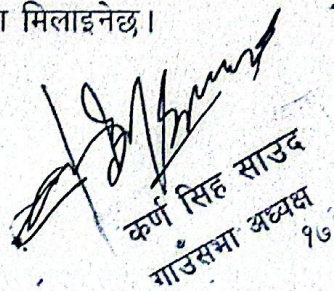 मिलाइनेछ।
कर्ण सिंह साउद
गाउँसभा अध्यक्ष
१७